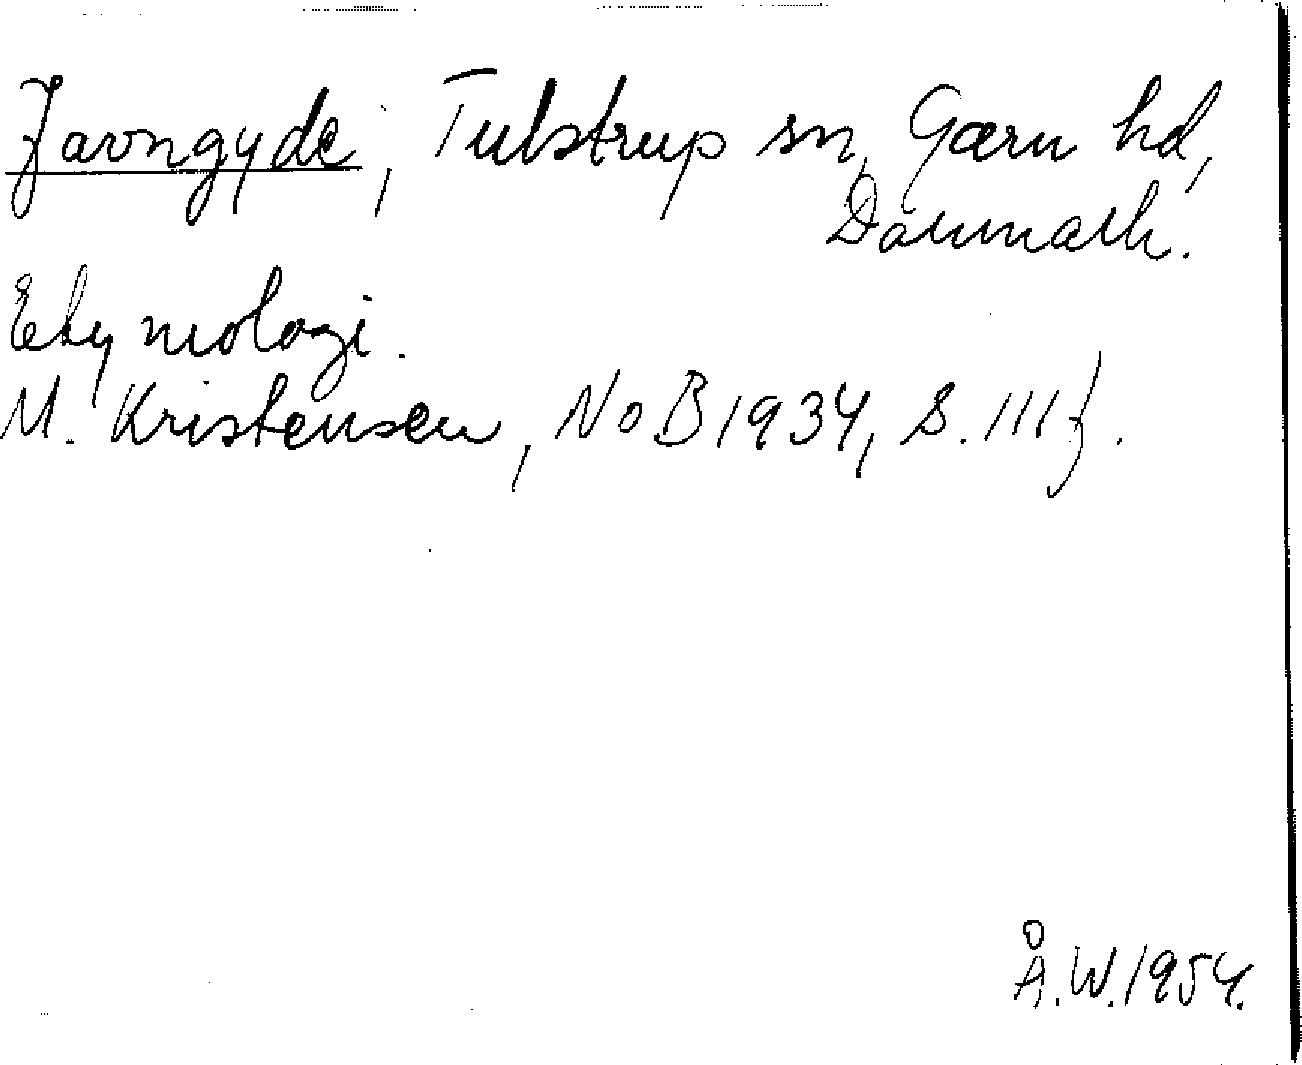 Javngyde, Tulstrup sn, Gærn hd,
Danmark.
Etymologi.
M. Kristensen, NoB 1934, S. 111 f.
Å.W. 1954.